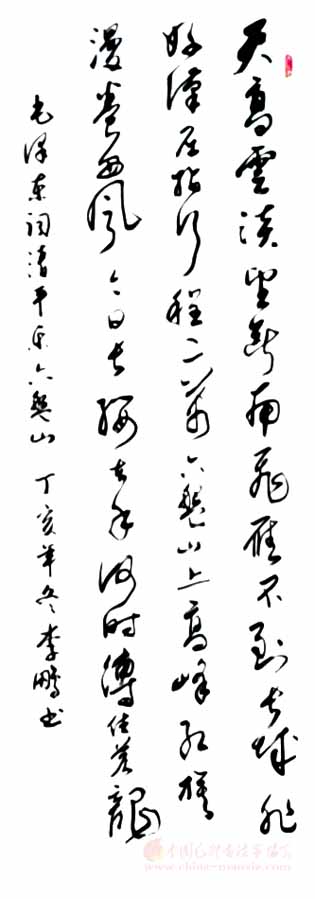 天高雲淡望斷南飛雁不到長城非
好漢屈指行程二萬六盤山上高峰紅旗
漫卷西風今日長纓在手何時縛住蒼龍
毛澤東詞清平樂六盤山 丁亥年冬李鵬书
www.china-maoxie.com